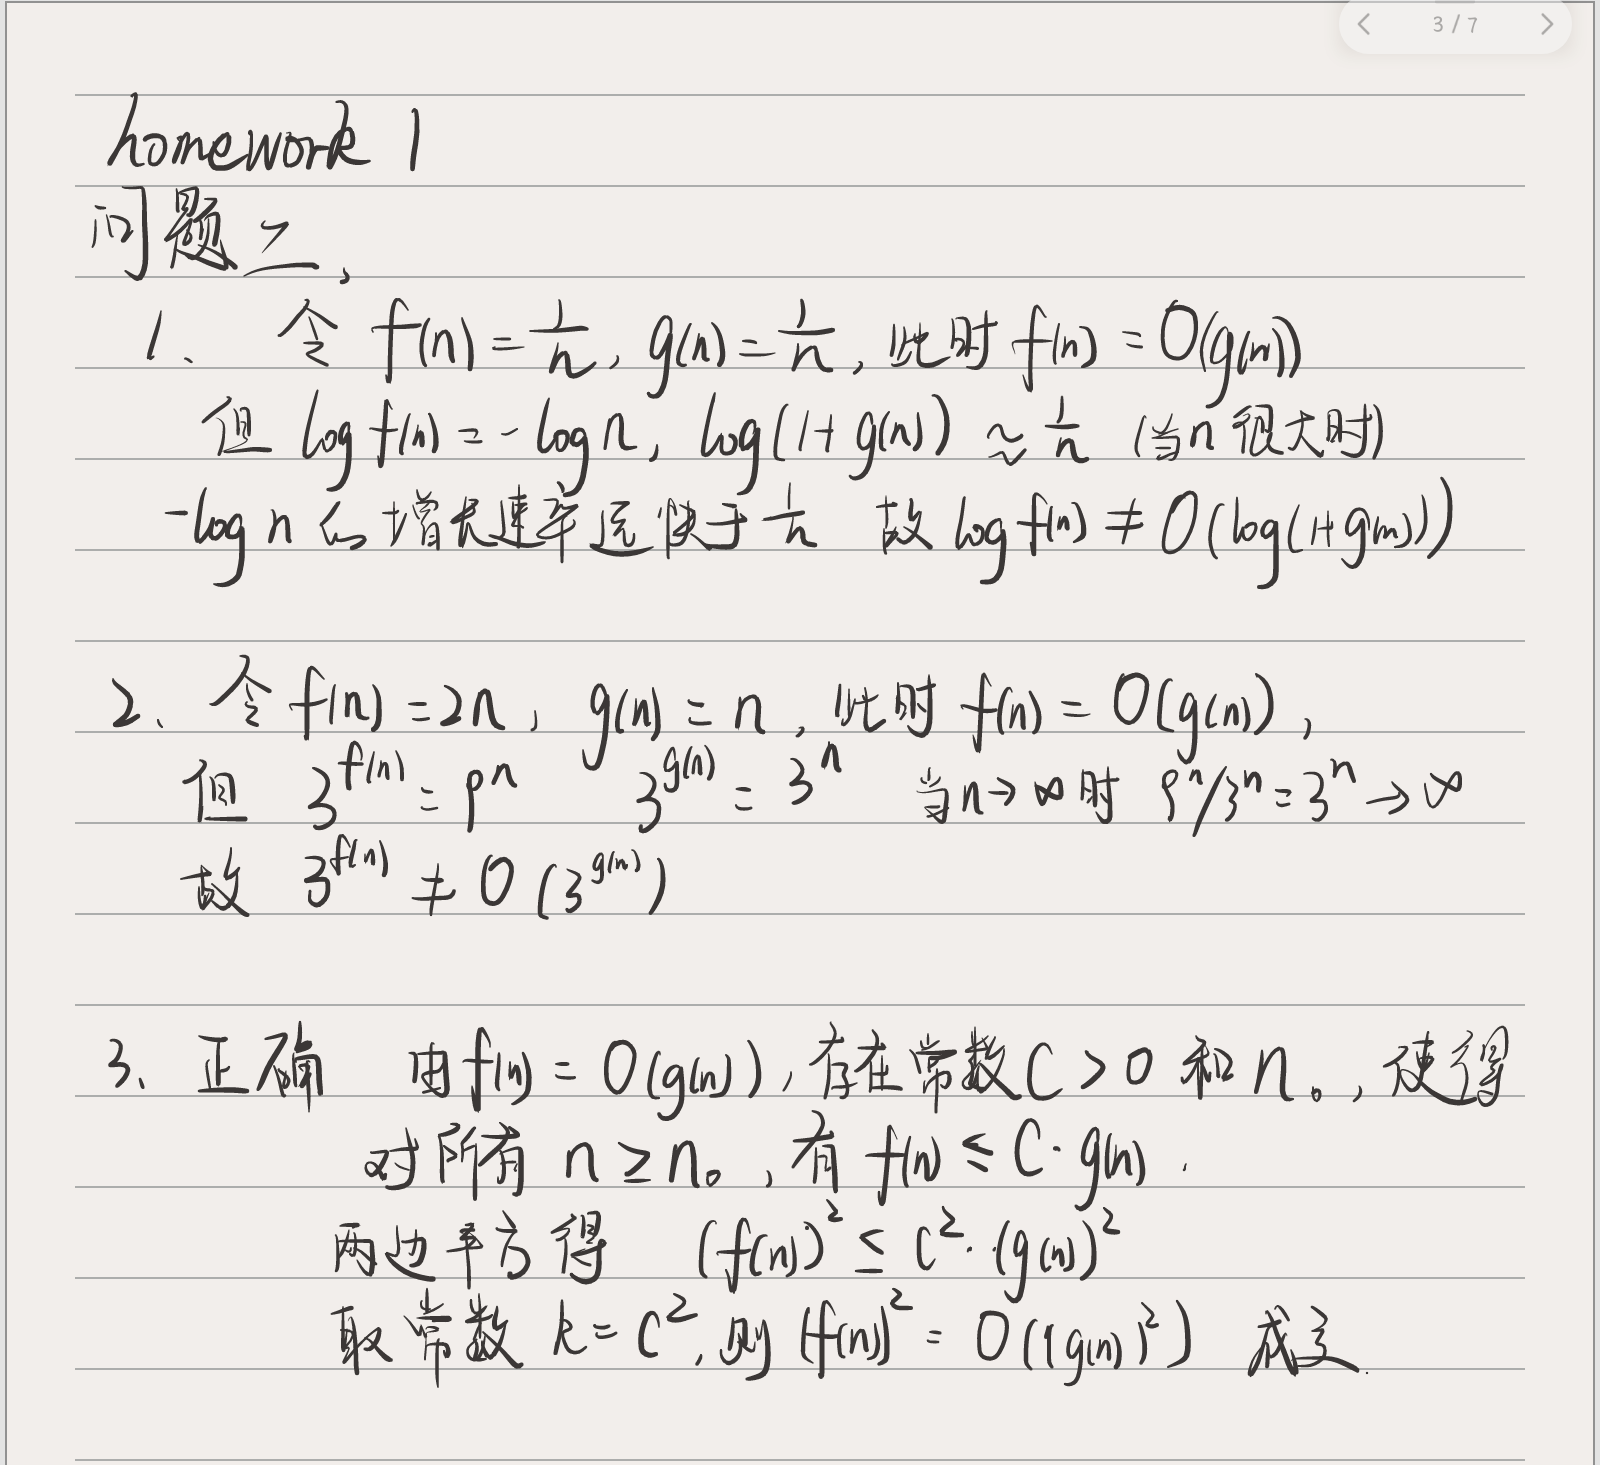 3 / 7
homework 1
问题二、
1、 令 f(n) = 1/n, g(n) = 1/n, 此时 f(n) = O(g(n))
但 log f(n) = -log n, log(1+g(n)) ≈ 1/n (当n很大时)
-log n 的增长速率远快于 1/n 故 log f(n) ≠ O(log(1+g(n)))
2、 令 f(n) = 2n, g(n) = n, 此时 f(n) = O(g(n)),
但 3^f(n) = 9^n 3^g(n) = 3^n 当n→∞时 9^n/3^n = 3^n → ∞
故 3^f(n) ≠ O(3^g(n))
3、 正确 由 f(n) = O(g(n)), 存在常数 C > 0 和 n₀, 使得
对所有 n ≥ n₀, 有 f(n) ≤ C·g(n).
两边平方得 (f(n))² ≤ C²·(g(n))²
取常数 k = C², 则 (f(n))² = O((g(n))²) 成立.